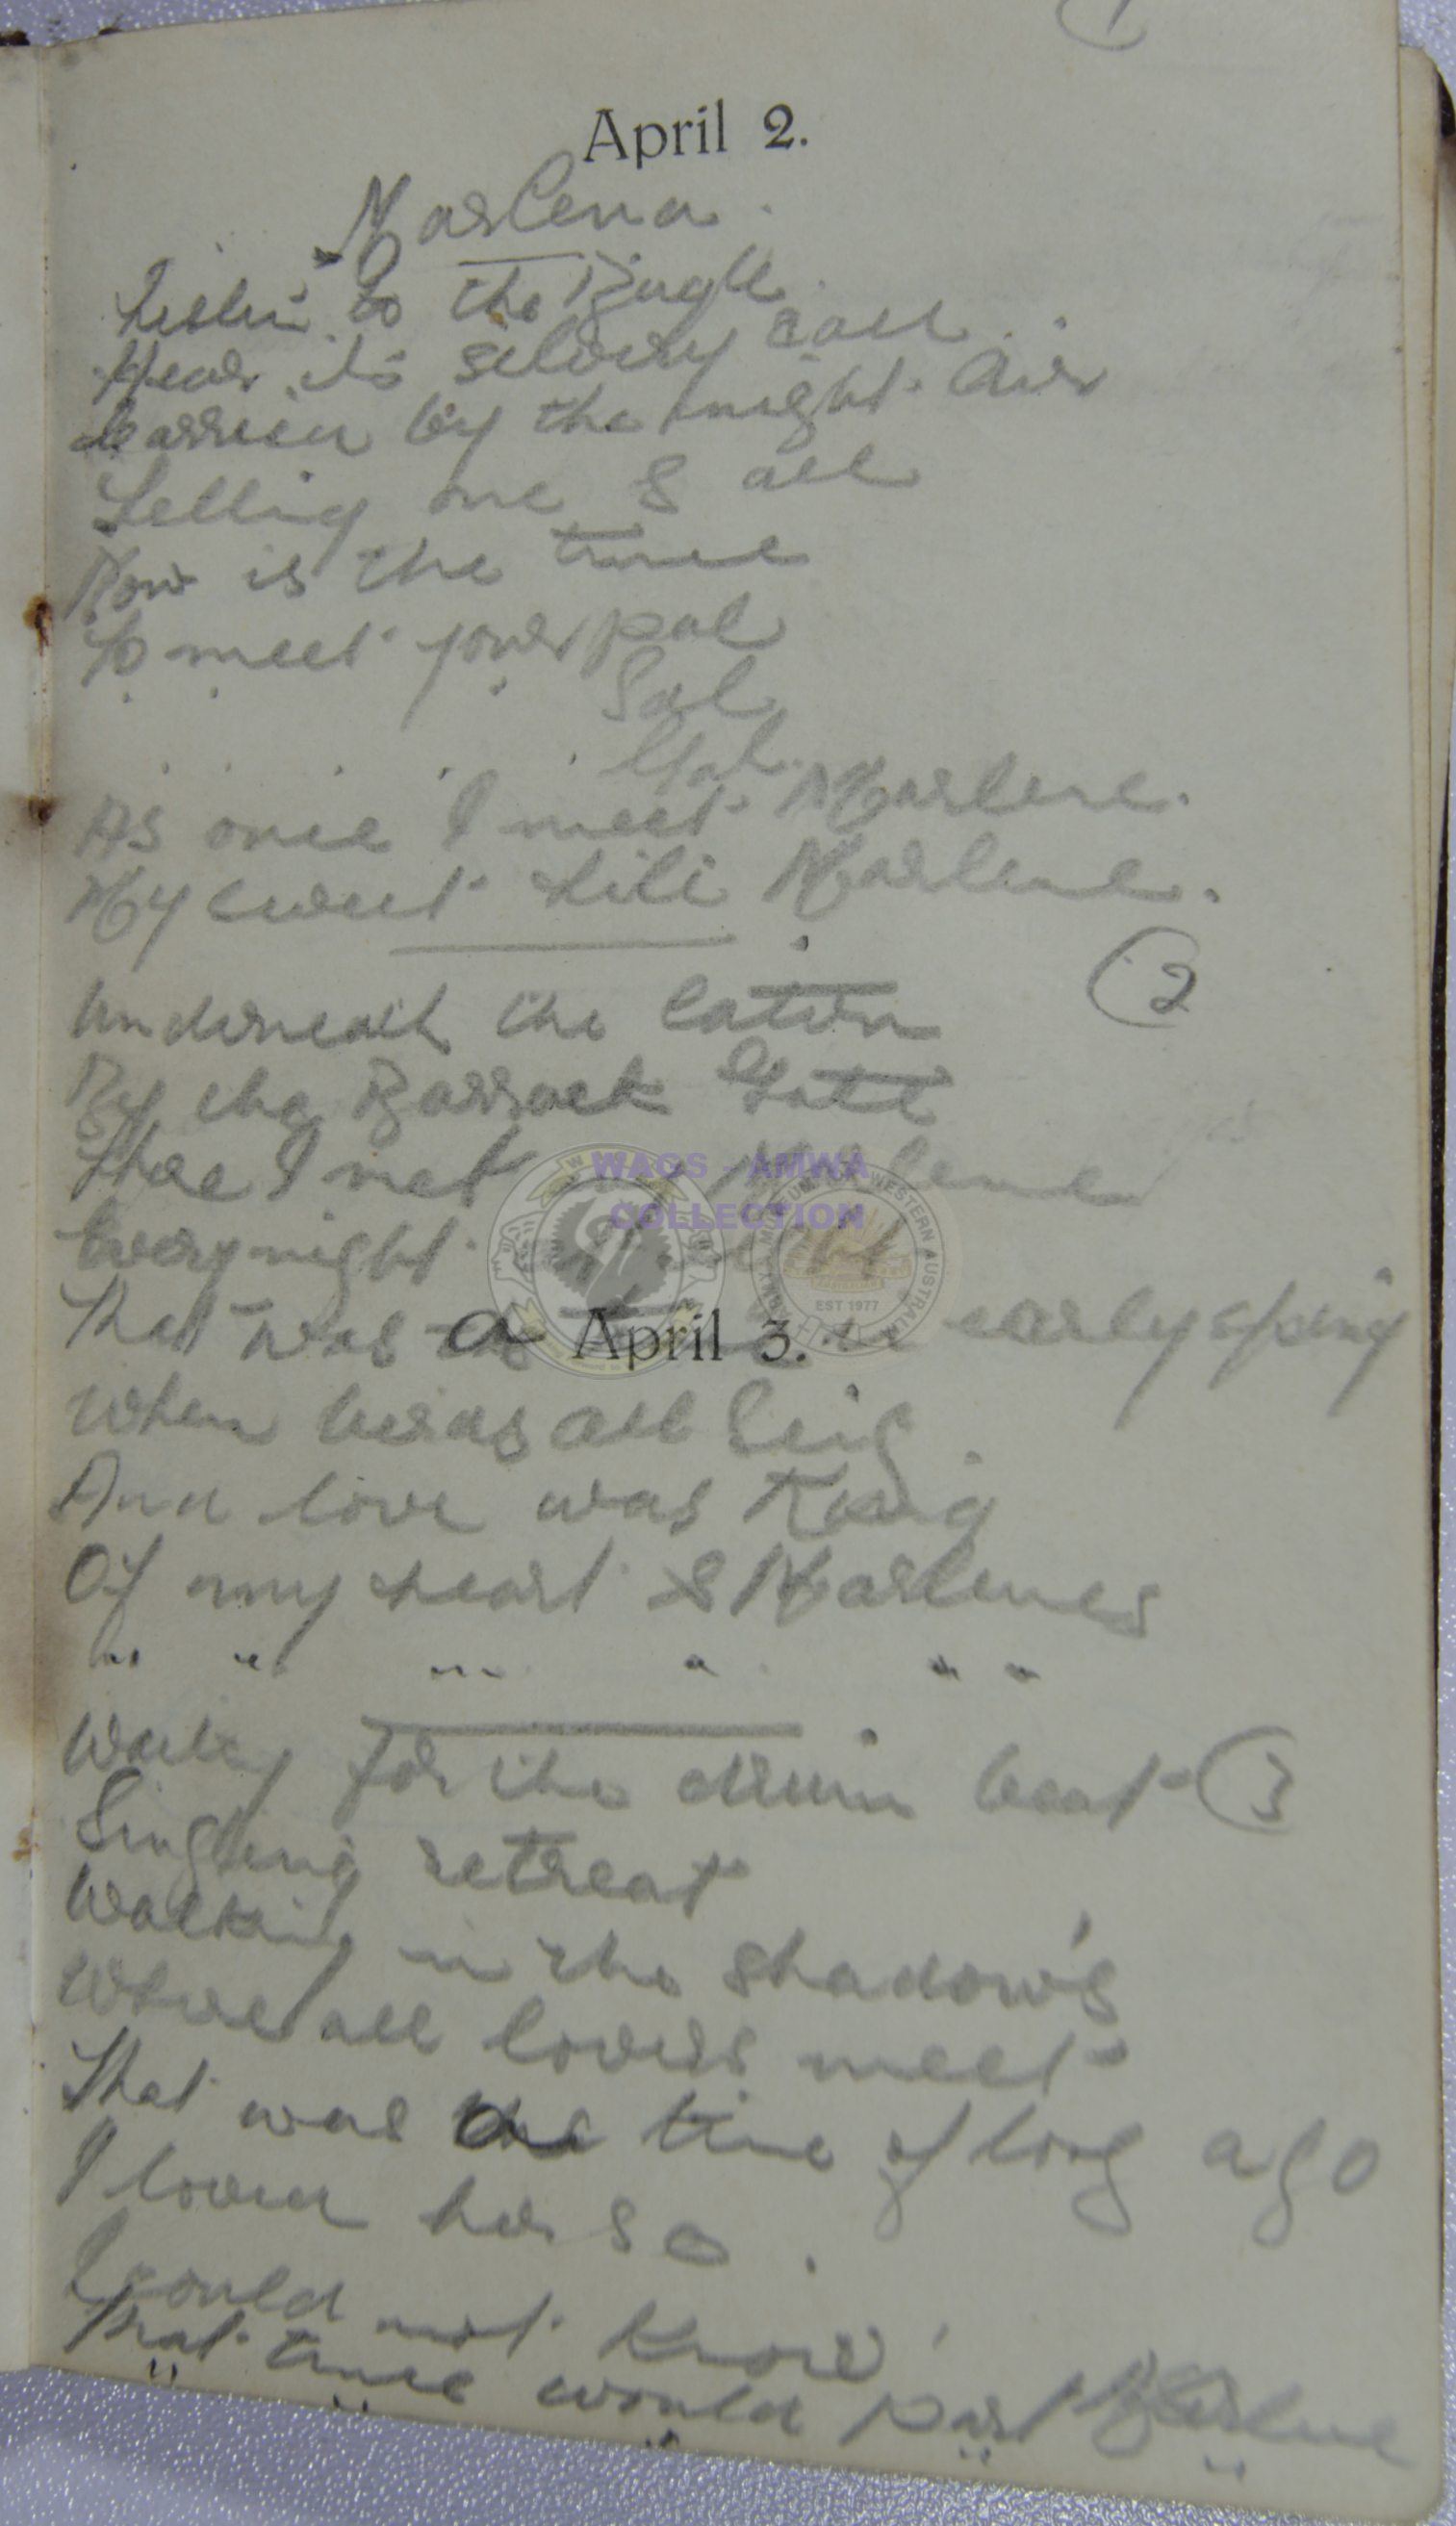 1
April 2.
Marlena.
Listen to the Bugle
Hear its silvery call
Carried by the night air
Telling one & all
Now is the time
To meet your pal
Gal
As once I meet Marlene.
My sweet Lili Marlene.
2
Underneath the latern
By the Barrack Gate
There I met Marlene
Every night
That was a early spring
April 3.
When birds all sing
And love was King
Of my heart & Marlenes
" " " " " "
Waiting for the drum beat 3
Singling retreat
Walking in the shadow's
Where all lovers meet
That was a time of long ago
I loved her so.
I could not know
That time would part Marlene
" " " " "
WAGS - AMWA
COLLECTION
WESTERN AUSTRALIA
EST 1977